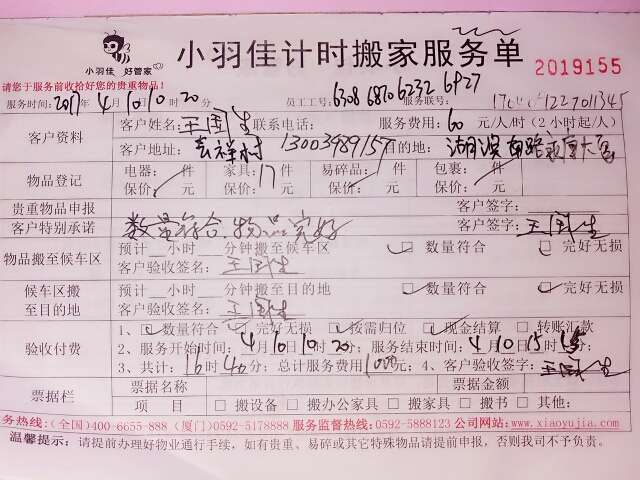 小羽佳 好管家
小羽佳计时搬家服务单
2019155
请您于服务前收拾好您的贵重物品!
服务时间:2017年4月10日10时20分 员工工号:6308 6870 6232 6927 服务联号:
客户资料
客户姓名:王国生 联系电话: 服务费用:60元/人/时(2小时起/人)
客户地址: 13003989157 目的地:
物品登记
电器: 件 家具:17件 易碎品: 件 包裹: 件
保价: 元 保价: 元 保价: 元 保价: 元
贵重物品申报 客户签字:
客户特别承诺 数量符合,物品完好 客户签字:王国生
物品搬至候车区
预计 小时 分钟搬至候车区 ☑ 数量符合 ☑ 完好无损
客户验收签名:王国生
候车区搬至目的地
预计 小时 分钟搬至目的地 ☑ 数量符合 ☑ 完好无损
客户验收签名:王国生
验收付费
1、☑ 数量符合 ☑ 完好无损 ☑ 按需归位 ☑ 现金结算 □ 转账汇款
2、服务开始时间:4月10日10时20分;服务结束时间:4月10日15时 分;
3、共计:16时40分;总计服务费用1000元;4、客户验收签字:王国生
票据栏
票据名称 票据金额
项 目 □ 搬设备 □ 搬办公家具 □ 搬家具 □ 搬书 □ 其他:
务热线:(全国)400-6655-888 (厦门)0592-5178888 服务监督热线:0592-5888123 公司网站:www.xiaoyujia.com
温馨提示:请提前办理好物业通行手续,如有贵重、易碎或其它特殊物品请提前申报,否则我司不予负责。